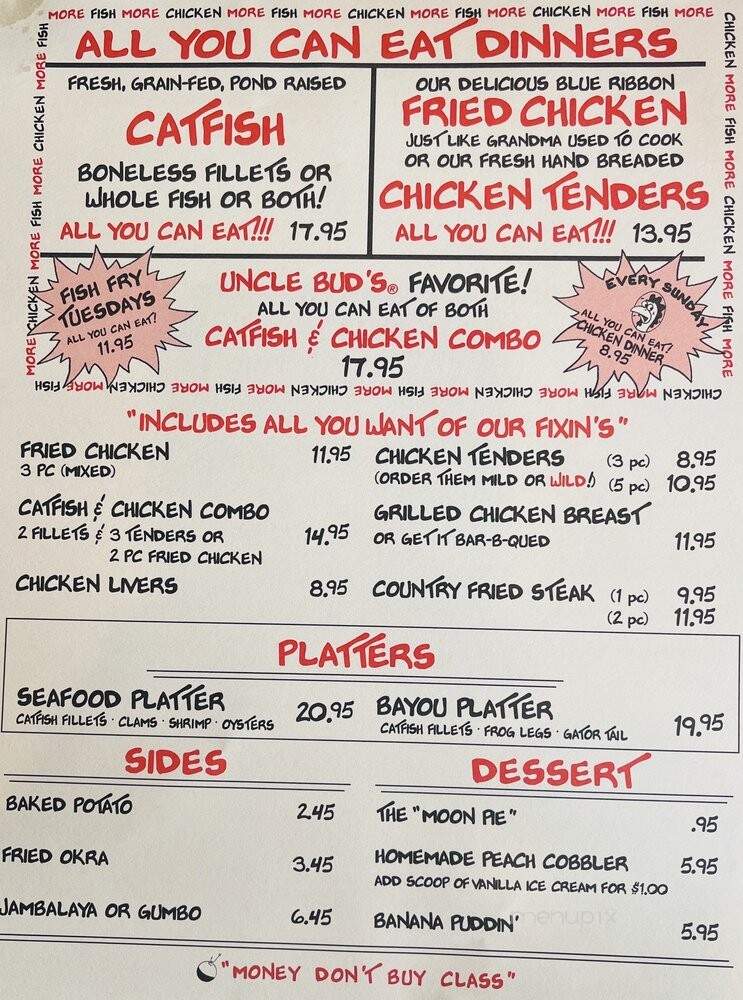 MORE FISH MORE CHICKEN MORE FISH MORE CHICKEN MORE FISH MORE CHICKEN MORE FISH MORE
ALL YOU CAN EAT DINNERS
FRESH, GRAIN-FED, POND RAISED
CATFISH
BONELESS FILLETS OR
WHOLE FISH OR BOTH!
ALL YOU CAN EAT!!! 17.95
OUR DELICIOUS BLUE RIBBON
FRIED CHICKEN
JUST LIKE GRANDMA USED TO COOK
OR OUR FRESH HAND BREADED
CHICKEN TENDERS
ALL YOU CAN EAT!!! 13.95
MORE CHICKEN MORE FISH MORE CHICKEN MORE FISH
CHICKEN MORE FISH MORE CHICKEN MORE FISH MORE
FISH FRY
TUESDAYS
ALL YOU CAN EAT!
11.95
UNCLE BUD'S® FAVORITE!
ALL YOU CAN EAT OF BOTH
CATFISH & CHICKEN COMBO
17.95
EVERY SUNDAY
ALL YOU CAN EAT!
CHICKEN DINNER
8.95
CHICKEN MORE FISH MORE CHICKEN MORE FISH MORE CHICKEN MORE FISH MORE CHICKEN MORE FISH
"INCLUDES ALL YOU WANT OF OUR FIXIN'S"
FRIED CHICKEN 11.95
3 PC (MIXED)
CATFISH & CHICKEN COMBO
2 FILLETS & 3 TENDERS OR 14.95
2 PC FRIED CHICKEN
CHICKEN LIVERS 8.95
CHICKEN TENDERS (3 pc) 8.95
(ORDER THEM MILD OR WILD!) (5 pc) 10.95
GRILLED CHICKEN BREAST
OR GET IT BAR-B-QUED 11.95
COUNTRY FRIED STEAK (1 pc) 9.95
(2 pc) 11.95
PLATTERS
SEAFOOD PLATTER 20.95
CATFISH FILLETS · CLAMS · SHRIMP · OYSTERS
BAYOU PLATTER 19.95
CATFISH FILLETS · FROG LEGS · GATOR TAIL
SIDES
BAKED POTATO 2.45
FRIED OKRA 3.45
JAMBALAYA OR GUMBO 6.45
DESSERT
THE "MOON PIE" .95
HOMEMADE PEACH COBBLER 5.95
ADD SCOOP OF VANILLA ICE CREAM FOR $1.00
BANANA PUDDIN' 5.95
menupix
"MONEY DON'T BUY CLASS"